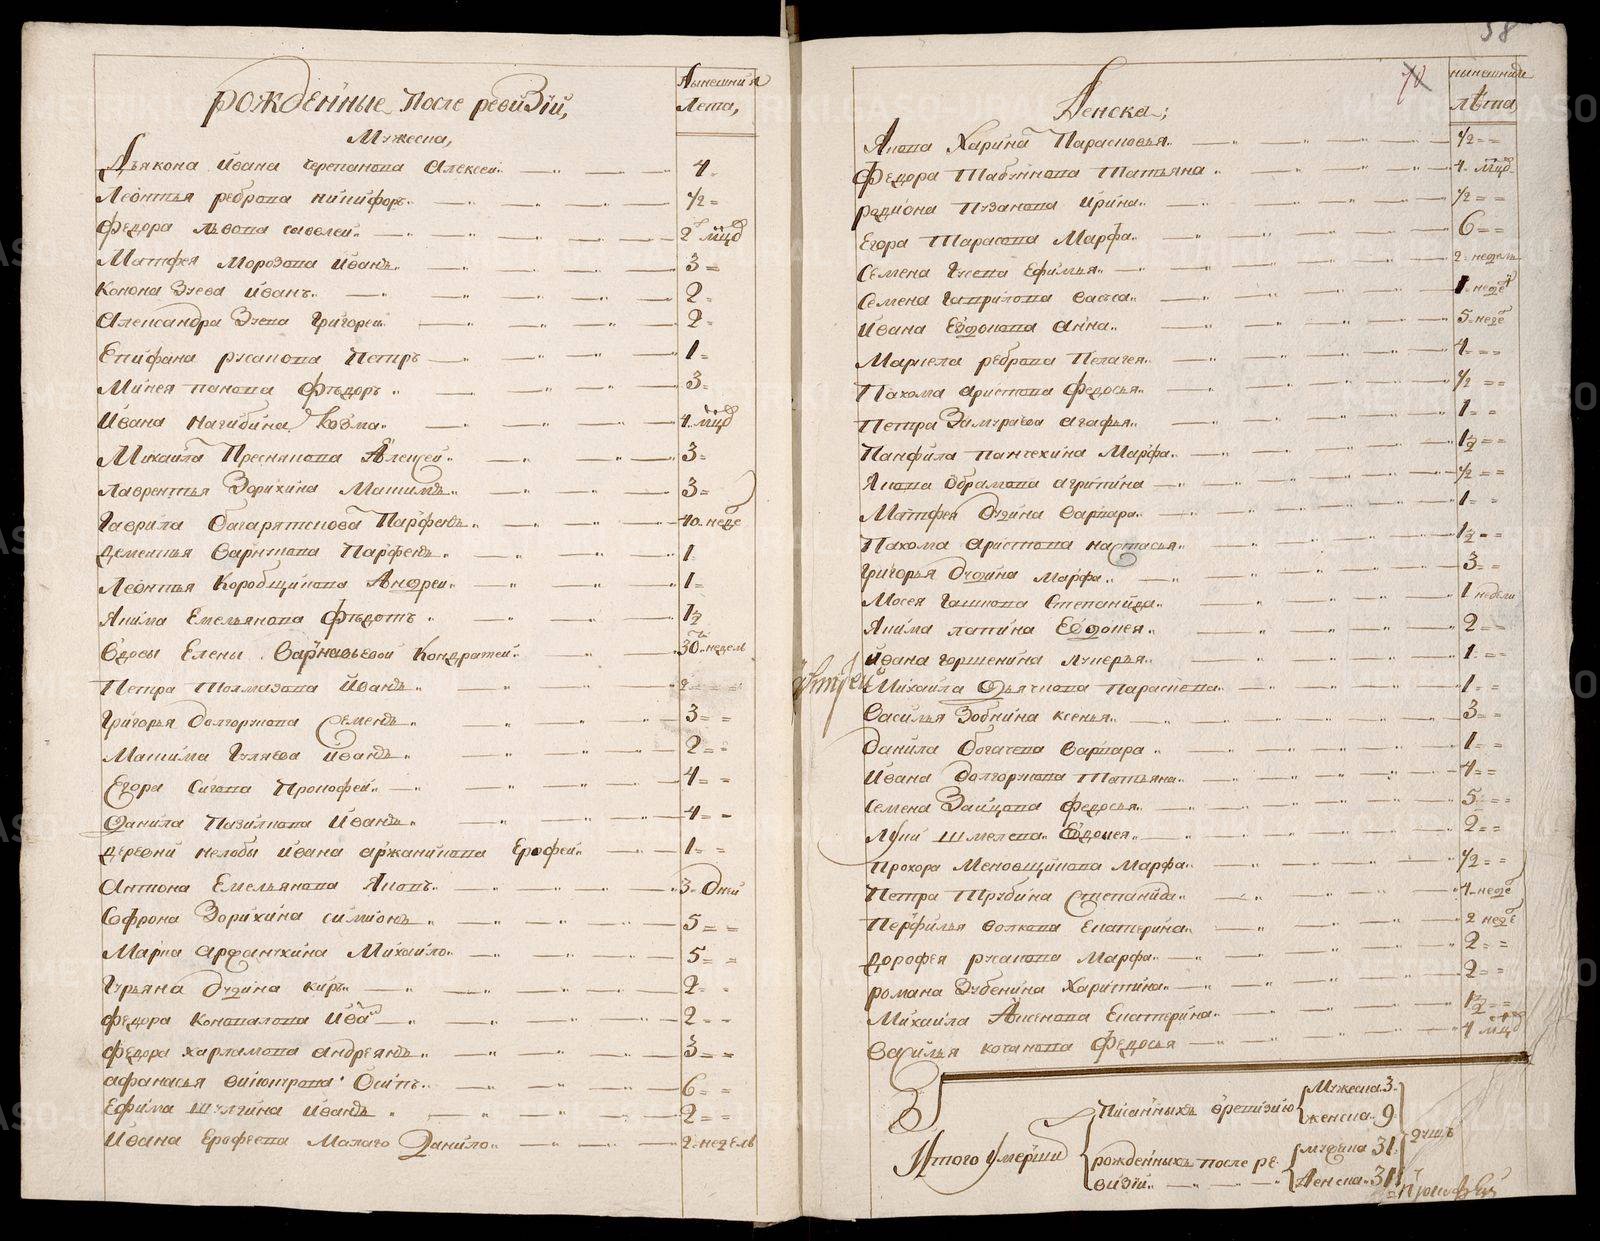 Рожденные После ревизіи,
Мужеска,
Нынешния
Лета,
Дьякона Ивана Черепанова Алексеи 4
Леонтья реброва никифоръ 1/2
Федора Львова савелеи 2 мцд
Матфея Морозова Иванъ 3
Конона Зуева Иванъ 2
Александра Зуева Григореи 2
Епифана русакова Петръ 1
Минея панова Фтьдоръ 3
Ивана Нагибина Козма 4 мцд
Михаила Преснякова Алексеи 3
Лаврентья Зорихина Максимъ 3
Гаврила Багарятскова Парфенъ 40 неде
Дементья Парфенъ 1
Леонтья Коробщикова Андреи 1
Якима Емельянова Фтьдотъ 1 1/2
вдовы Елены Варнавьевои Кондратеи 30 недель
Петра Толмазова Иванъ 2
Григорья Долгорукова Семенъ 3
Максима Гуляева иванъ 2
Егора Сигова Прокофеи 4
Данила Пазилкова Иванъ 4
деревни нелобы ивана аржаникова Ерофеи 1
Антиона Емельянова Яковъ 3 Дней
Софрона Зорихина симионъ 5
Марка арфанчихина Михаило 5
Гурьяна Дудина киръ 2
Федора Коновалова Ива 2
Федора харламова андреянъ 3
афанасья винокурова Осипъ 6
Ефима шулгина Иванъ 2
Ивана Ерофеева Малаго Данило 2 недель
58
70
Женска;
нынешнии
лѣта
Якова Харина Парасковья 1/2
Федора Табункова Татьяна 4 мцд
родиона Пузанова Ирина 1/2
Егора Тарасова Марфа 6
Семена Гусева Ефимья 2 недель
Семена Гаврилова васса 1 неде
Ивана анна 5 неде
Маркела реброва Пелагея 4
Пахома аристова Федосья 1/2
Петра Замураева агафья 1
Панфила пантехина Марфа 1 1/2
Якова Обрамова агрипина 1/2
Матфея Дудина варвара 1
Пахома аристова настасья 1 1/2
Григорья Дудина Марфа 3
Мосея Гашкова Степанида 1 недели
Якима лапина Евдокея 2
Ивана горшенина лукерья 1
Михаила Дьячкова параскева 1
Василья Зобнина ксенья 3
Данила Богачева варвара 1
Ивана Долгорукова Татьяна 4
Семена Заицова Федосья 5
Луки шмелева Евдокея 2
Прохора Меновщикова Марфа 1/2
Петра Трубина Степанида 4 неде
Перфилья волкова Екатерина 2 неде
Дорофея русакова Марфа 2
романа Зубенина Харитина 2
Михаила Аксенова Екатерина 1 1/2
Василья кочанова Федосья 4 мцд
Итого умерши
Писанныхъ вревизию Мужеска 3
женска 9
рожденныхъ после ре-
визіи
мужина 31
Женска 31
душъ